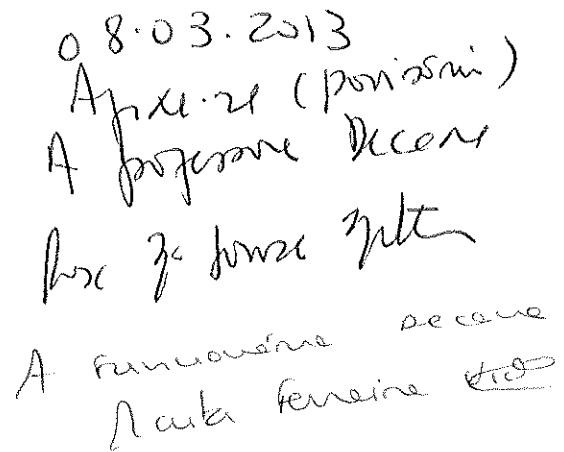 08.03.2013
Afixe-se (provisória)
A professora Decana
Rosa
A Funcionária Decana
Marta Ferreira